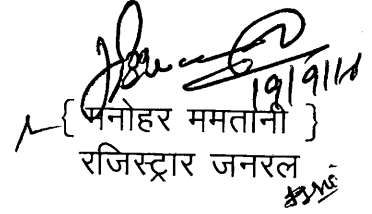 19/9/18
{ मनोहर ममतानी }
रजिस्ट्रार जनरल